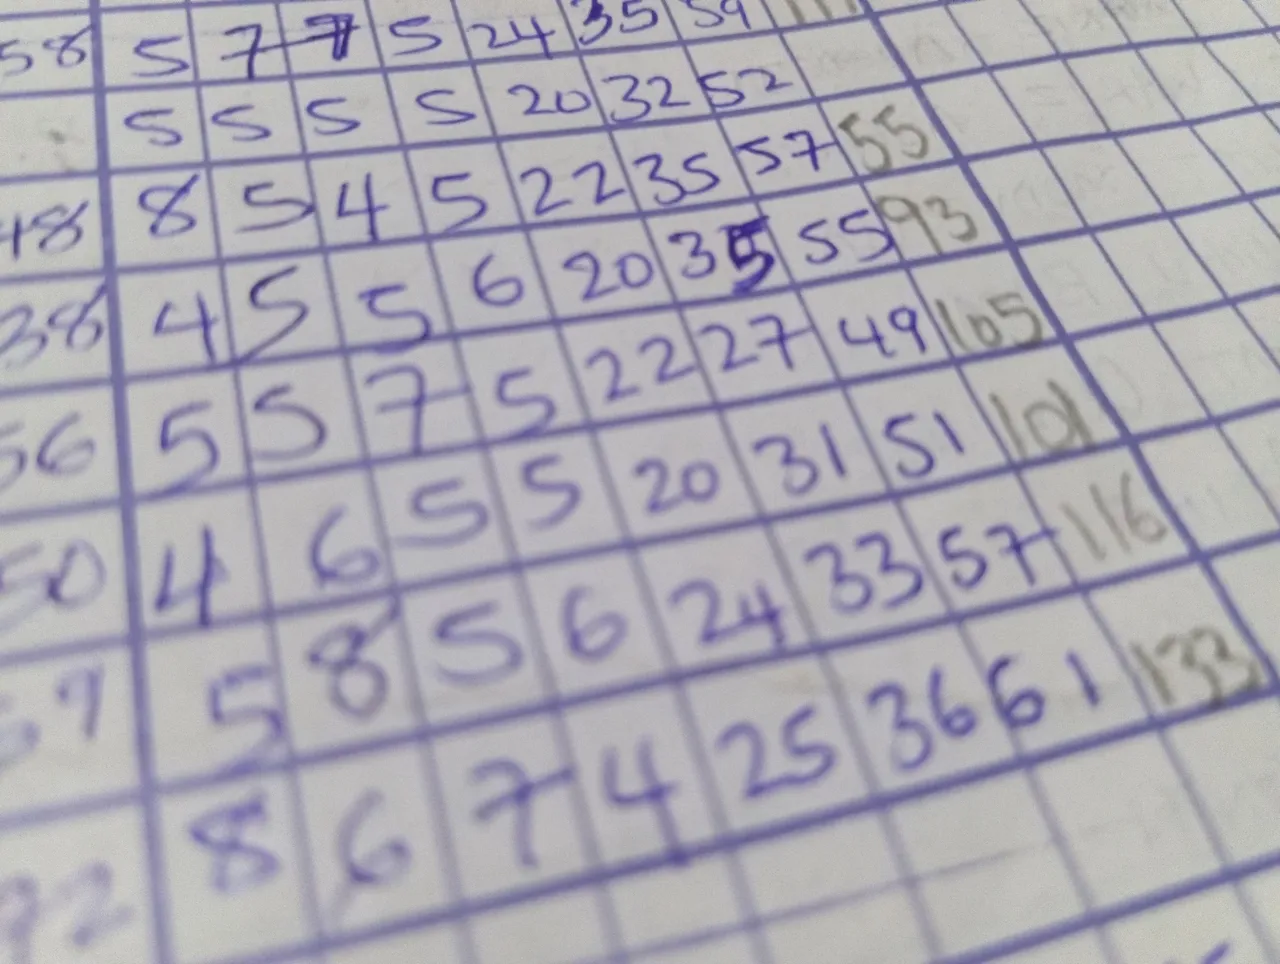 58 5 7 7 5 24 35 59 111
5 5 5 5 20 32 52
48 8 5 4 5 22 35 57 55
38 4 5 5 6 20 35 55 93
56 5 5 7 5 22 27 49 105
50 4 6 5 5 20 31 51 101
5 8 5 6 24 33 57 116
8 6 7 4 25 36 61 133